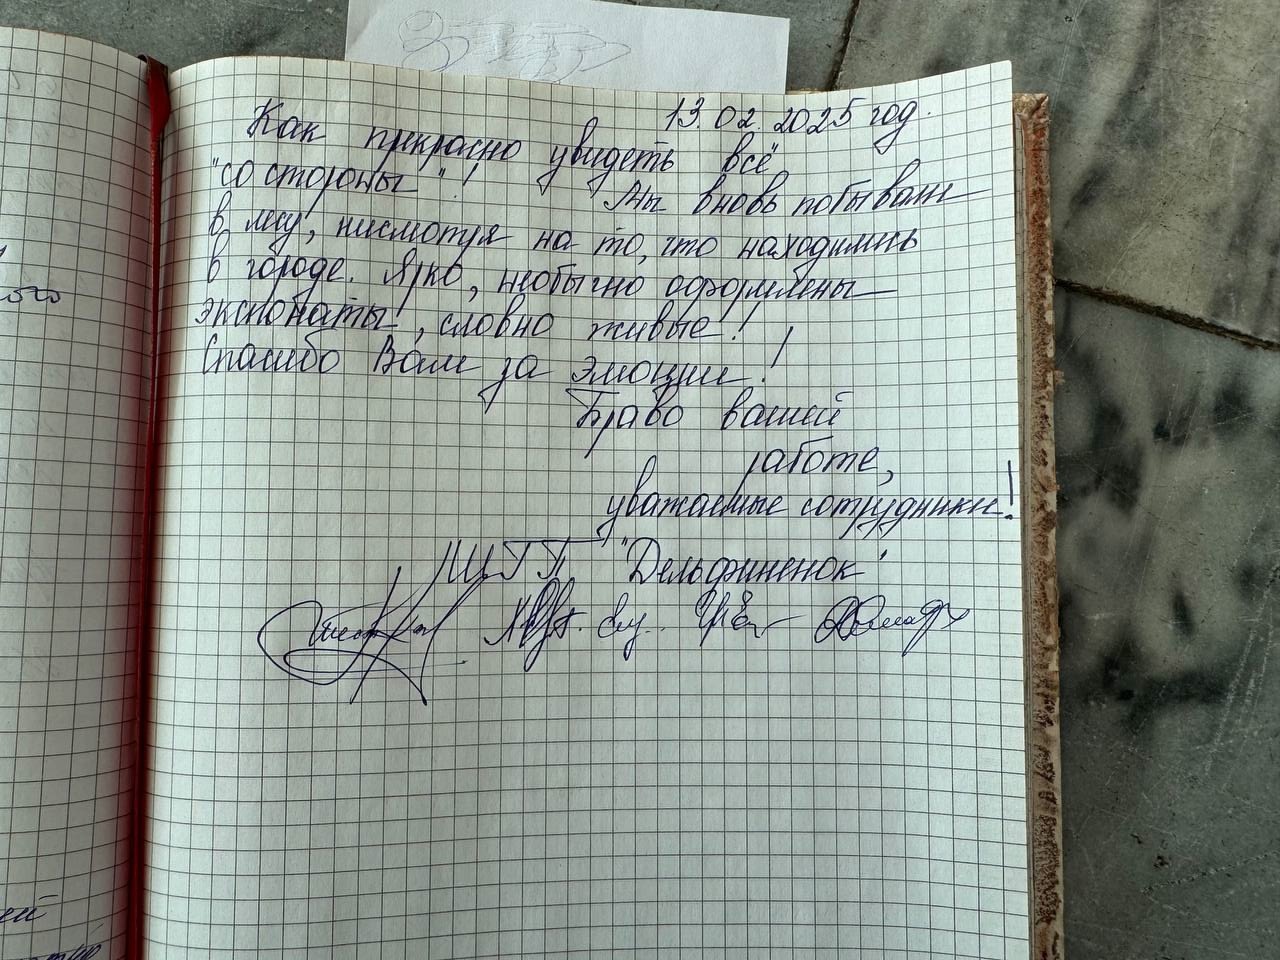 13.02.2025 год.
Как прекрасно увидеть всё
"со стороны"! Мы вновь побывали
в лесу, нисмотря на то, что находились
в городе. Ярко, необычно оформлены
экспонаты, словно живые!
Спасибо Вам за эмоции!
Браво вашей
работе,
уважаемые сотрудники!
"Дельфиненок"